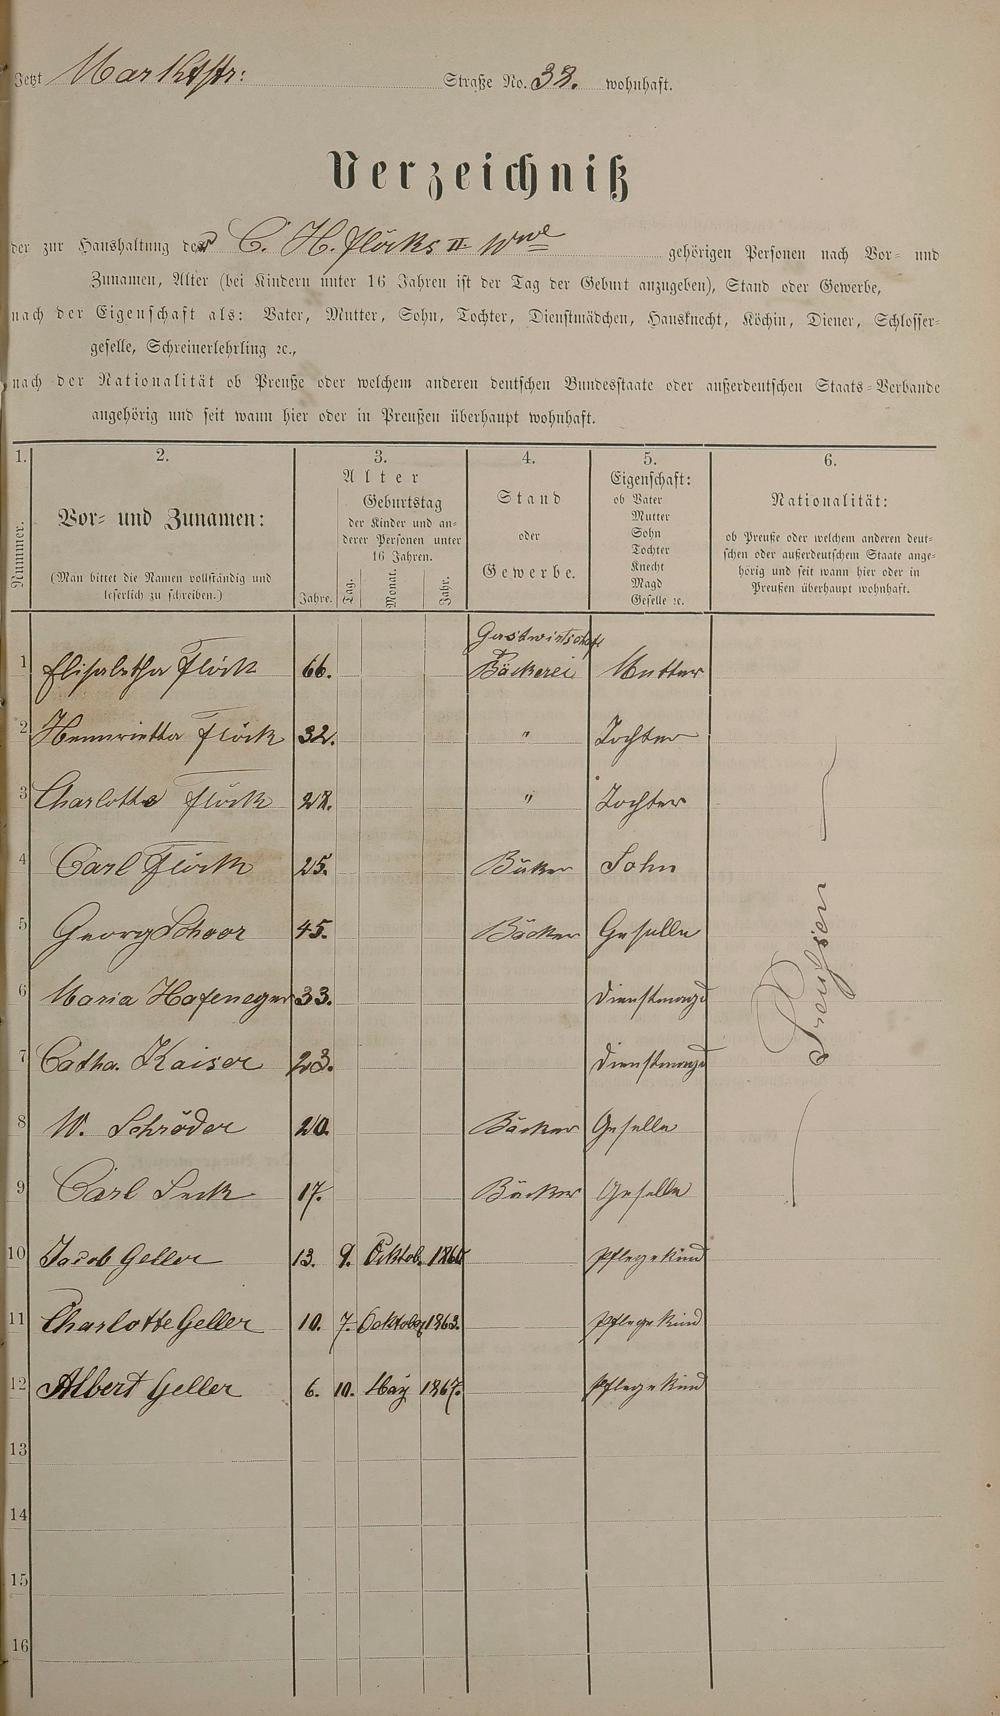 Jetzt Marktstr: Straße No. 38. wohnhaft.
Verzeichniß
der zur Haushaltung der C. H. Flöcks II Wwe gehörigen Personen nach Vor- und
Zunamen, Alter (bei Kindern unter 16 Jahren ist der Tag der Geburt anzugeben), Stand oder Gewerbe,
nach der Eigenschaft als: Vater, Mutter, Sohn, Tochter, Dienstmädchen, Hausknecht, Köchin, Diener, Schlosser-
geselle, Schreinerlehrling ꝛc.,
nach der Nationalität ob Preuße oder welchem anderen deutschen Bundesstaate oder außerdeutschen Staats-Verbande
angehörig und seit wann hier oder in Preußen überhaupt wohnhaft.
1. 2. 3. 4. 5. 6.
Nummer.
Vor- und Zunamen:
(Man bittet die Namen vollständig und
leserlich zu schreiben.)
Alter
Jahre.
Geburtstag
der Kinder und an-
derer Personen unter
16 Jahren.
Tag. Monat. Jahr.
Stand
oder
Gewerbe.
Eigenschaft:
ob Vater
Mutter
Sohn
Tochter
Knecht
Magd
Geselle ꝛc.
Nationalität:
ob Preuße oder welchem anderen deut-
schen oder außerdeutschem Staate ange-
hörig und seit wann hier oder in
Preußen überhaupt wohnhaft.
Gastwirtschaft
1 Elisabetha Flöck 66. Bäckerei Mutter
2 Hennrietta Flöck 32. " Tochter
3 Charlotte Flöck 28. " Tochter
4 Carl Flöck 25. Bäker Sohn
5 Georg Schoor 45. Bäcker Geselle
6 Maria Hafeneger 33. Dienstmagd
7 Catha. Kaiser 23. Dienstmagd
8 W. Schröder 20. Bäcker Geselle
9 Carl Seck 17. Bäcker Geselle
10 Jacob Geller 13. 9. Ocktob. 1860 Pflegekind
11 Charlotte Geller 10. 7. Ocktober 1863. Pflegekind
12 Albert Geller 6. 10. May 1867. Pflegekind
13
14
15
16
Preußen